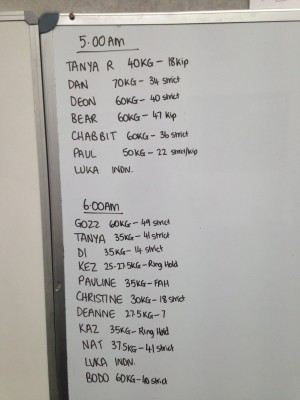 5.00am
TANYA R 40KG - 18kip
DAN 70KG - 34 strict
DEON 60KG - 40 strict
BEAR 60KG - 47 kip
CHABBIT 60KG - 36 strict
PAUL 50KG - 22 strict/kip
LUKA INDN.
6.00am
GOZZ 60KG - 49 strict
TANYA 35KG - 41 strict
DI 35KG - 14 strict
KEZ 25-27.5KG - Ring Hold
PAULINE 35KG - FAH
CHRISTINE 30KG - 18 strict
DEANNE 27.5KG - 7
KAZ 35KG - Ring Hold
NAT 37.5KG - 41 strict
LUKA INDN.
BODO 60KG - 40 strict